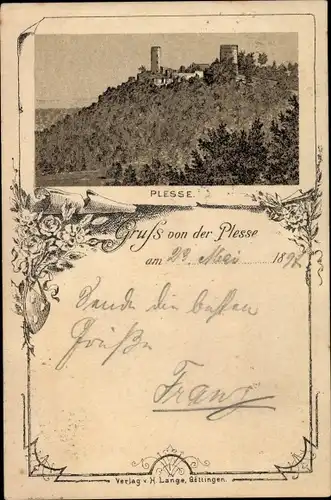 PLESSE.
Gruß von der Plesse
am 23 Mai 1897
Sende die besten
Grüße
Franz
Verlag v. H. Lange, Göttingen.